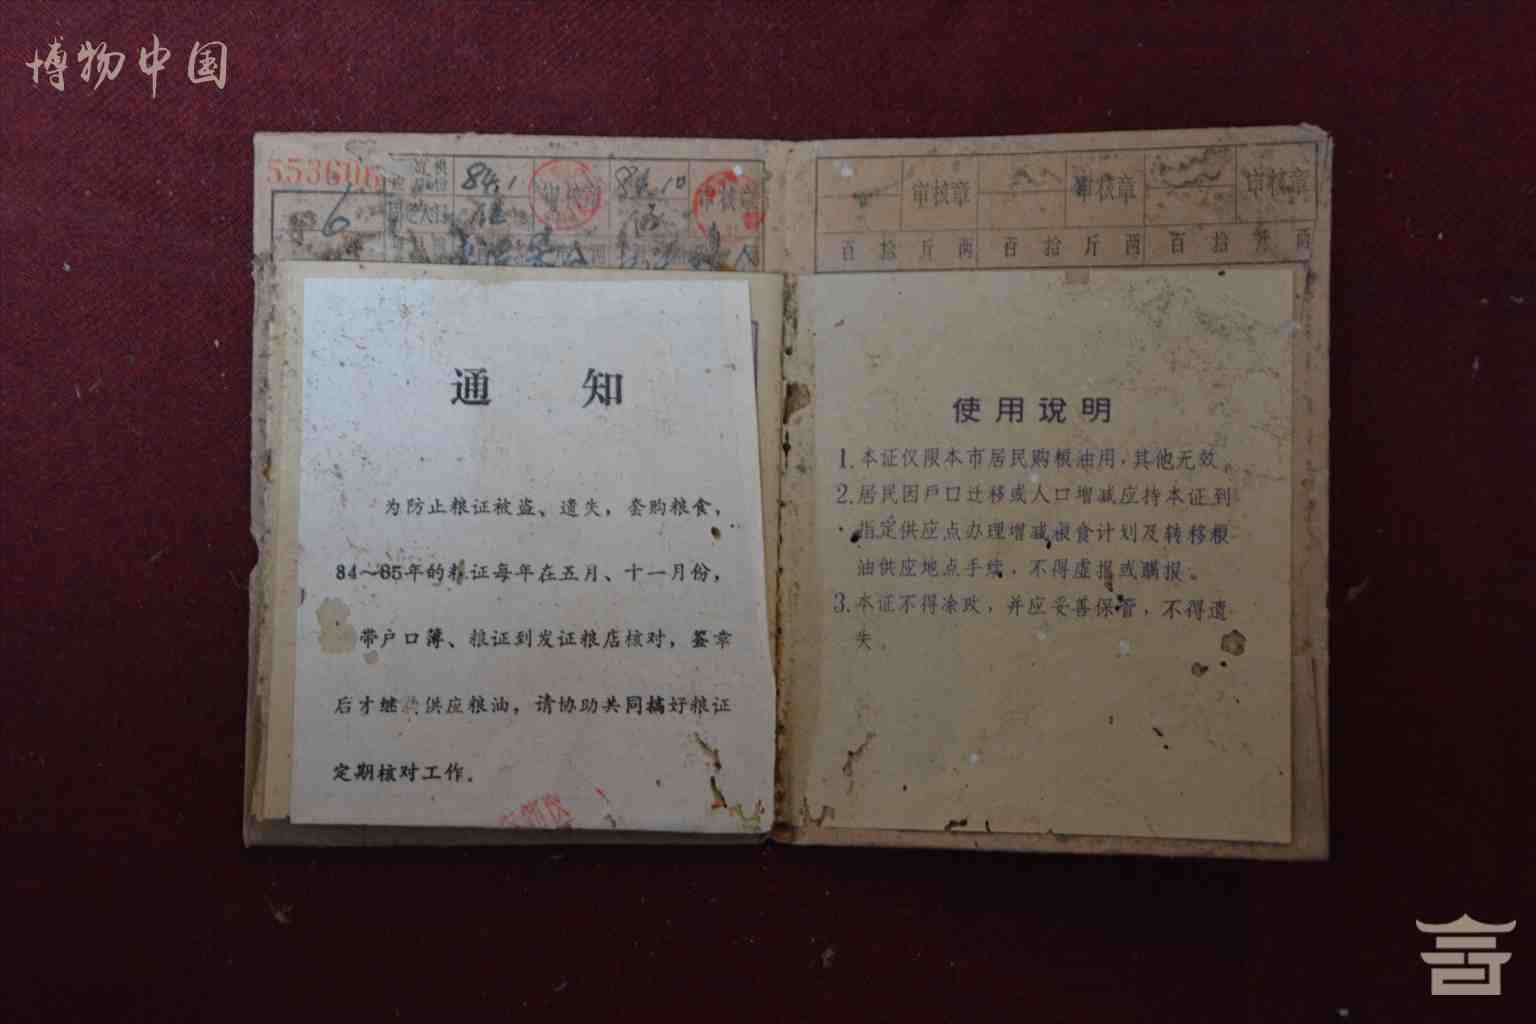 博物中国
553606
6
84.1
84.10
审核章
审核章
审核章
审核章
审核章
百拾斤两百拾斤两百拾斤两
通知
为防止粮证被盗、遗失，套购粮食，
84～85年的粮证每年在五月、十一月份，
带户口薄、粮证到发证粮店核对，签章
后才继供应粮油，请协助共同搞好粮证
定期核对工作。
使用说明
1.本证仅限本市居民购粮油用，其他无效。
2.居民因户口迁移或人口增减应持本证到
指定供应点办理增减粮食计划及转移粮
油供应地点手续，不得虚报或瞒报。
3.本证不得涂改，并应妥善保管，不得遗
失。